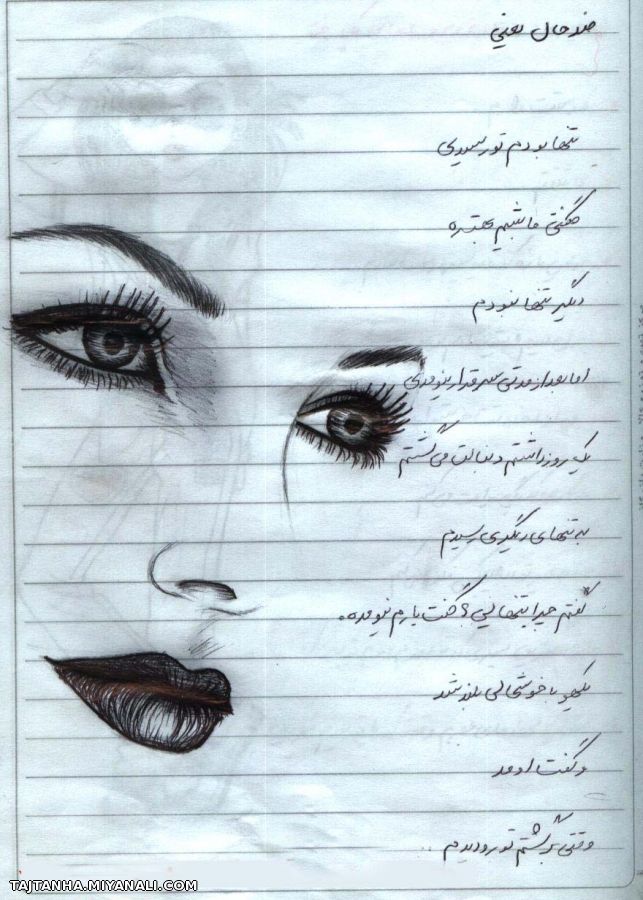 ضد حال یعنی
تنها بودم تو رسیدی
گفتی ما شیم بهتره
دیگر تنها نبودم
اما بعد از مدتی سر قرار نیومدی
یک روز داشتم دنبالت می گشتم
به تنهای دیگری رسیدم
گفتم چرا تنهایی؟ گفت یارم نیومده.
یکهو با خوشحالی بلند شد
و گفت اومد
وقتی برگشتم تو رو دیدم ..
TAJTANHA.MIYANALI.COM